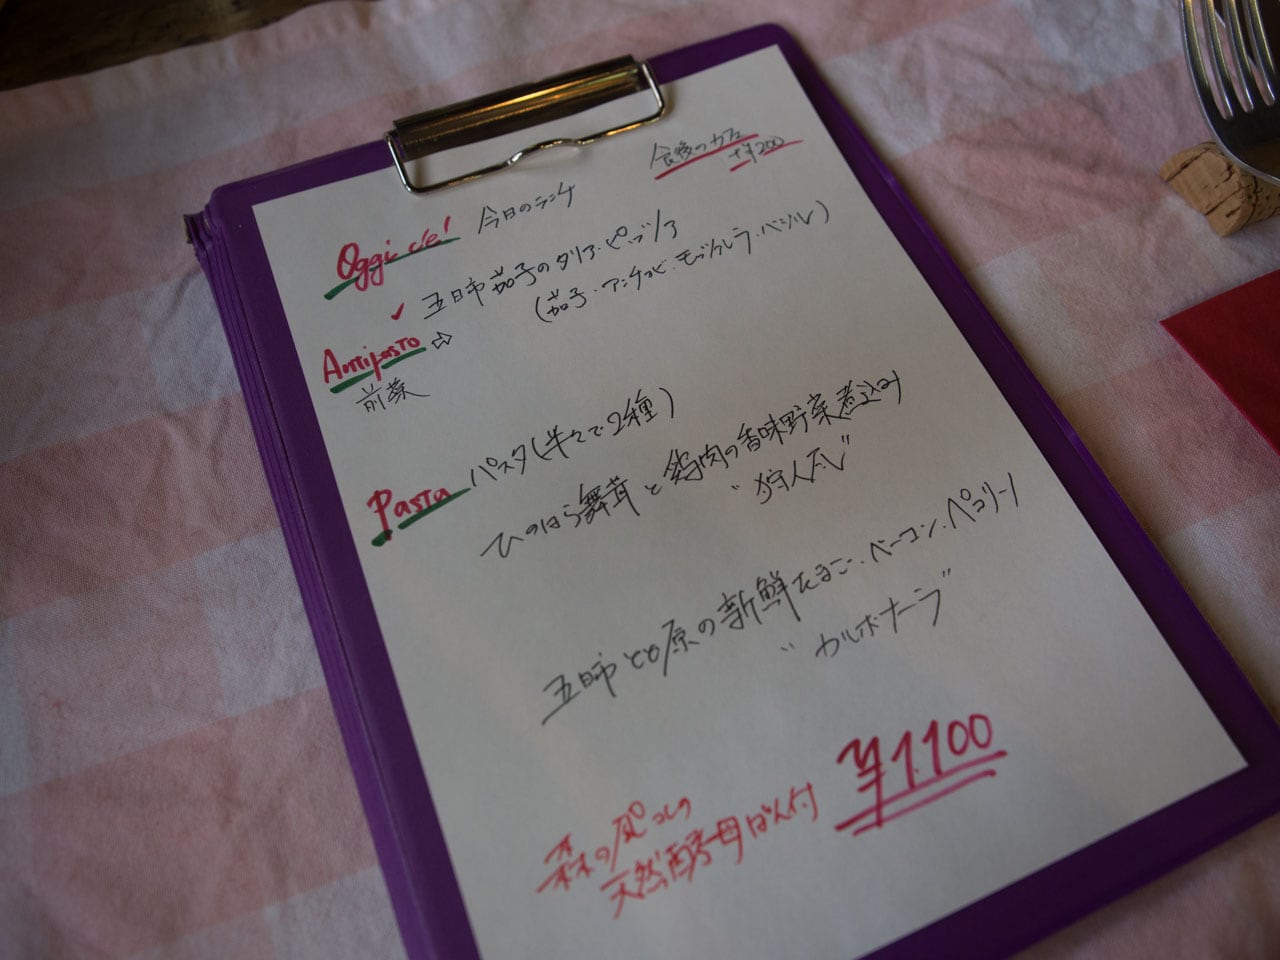 食後のカフェ
+¥200
Oggi del 今日のランチ
✓ 五日市茄子のタリア・ピッツア
(茄子・アンチョビ・モッツァレラ・バジル)
Antipasto ⇨
前菜
Pasta パスタ(半々で2種)
ひのはら舞茸と鶏肉の香味野菜煮込み
"狩人風"
五日市とも原の新鮮たまご・ベーコン・ペコリーノ
"カルボナーラ"
¥1.100
森の
天然酵母ぱん付